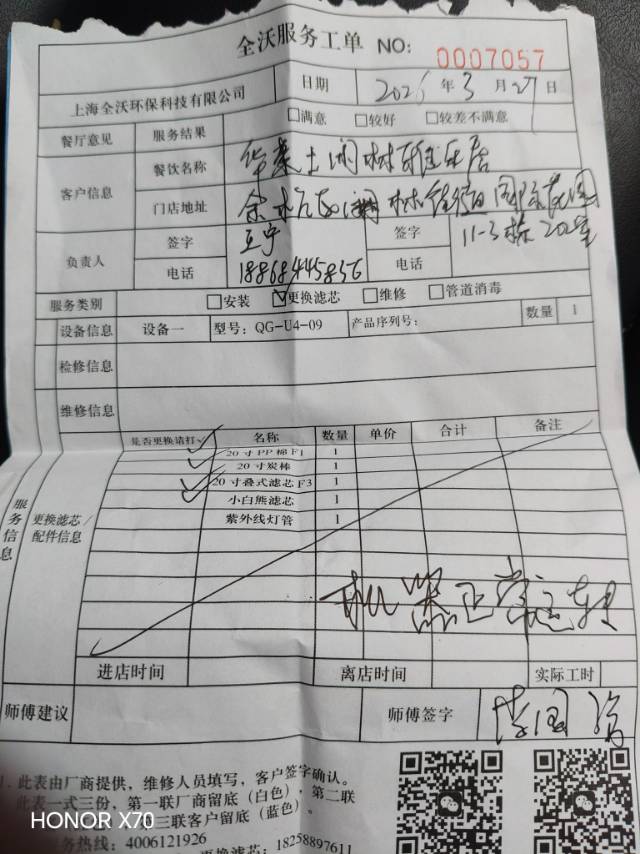 全沃服务工单 NO: 0007057
上海全沃环保科技有限公司 日期 2026 年 3 月 27 日
餐厅意见 服务结果 □满意 □较好 □较差不满意
客户信息 餐饮名称
门店地址 国际花园
11-3栋 202室
负责人 签字 王宁 签字
电话 18868445856 电话
服务类别 □安装 ☑更换滤芯 □维修 □管道消毒
设备信息 设备一 型号：QG-U4-09 产品序列号： 数量 1
检修信息
维修信息
服务信息 更换滤芯/配件信息
是否更换请打✓ 名称 数量 单价 合计 备注
✓ 20寸PP棉F1 1
20寸炭棒 1
✓ 20寸叠式滤芯F3 1
小白熊滤芯 1
紫外线灯管 1
机器正常运转
进店时间 离店时间 实际工时
师傅建议 师傅签字
1. 此表由厂商提供，维修人员填写，客户签字确认。
此表一式三份，第一联厂商留底（白色），第二联
三联客户留底（蓝色）。
务热线：4006121926
更换滤芯：18258897611
HONOR X70